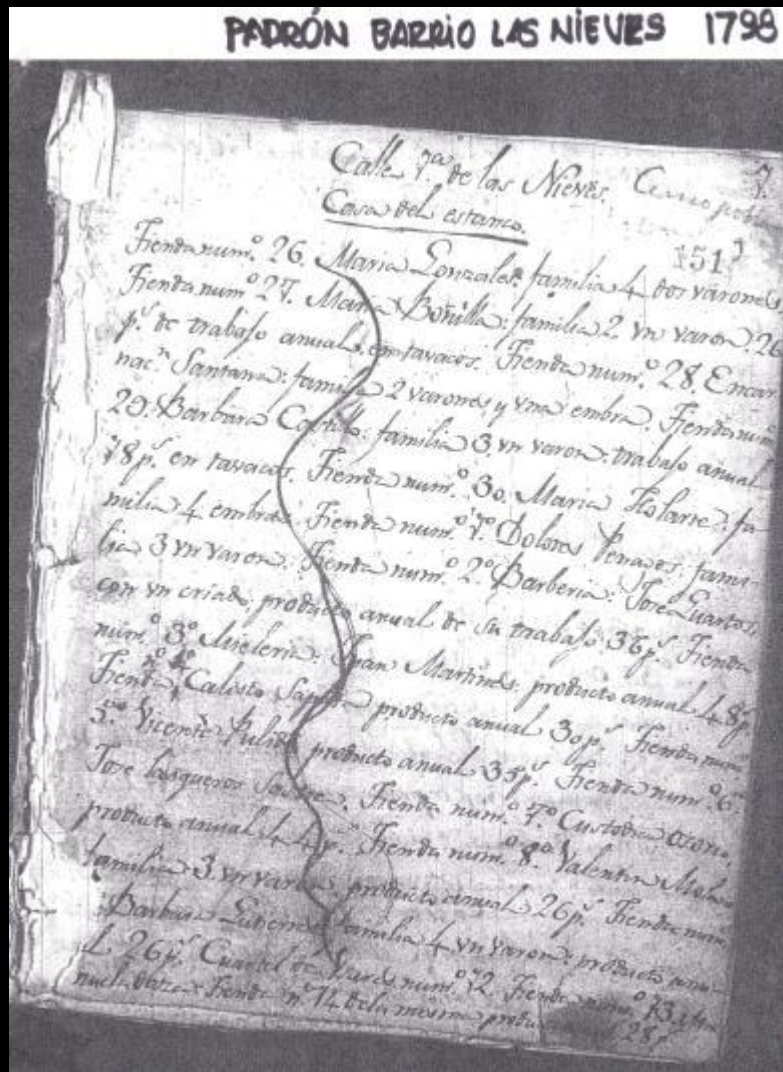 PADRÓN BARRIO LAS NIEVES 1798
7.
Calle 7.ª de las Nieves.
Casa del estanco.
151
Tienda num.º 26. Maria Gonzales: familia 4 dos varones
Tienda num.º 27. Maria Bonilla: familia 2. vn varon. 26
p.s de trabajo anual en tavacos. Tienda num.º 28. Encar
nac.n Santana: familia 2 varones, y vna embra. Tienda num
29. Barbara Castillo: familia 3. vn varon: trabajo anual
18 p.s en tavacos. Tienda num.º 30. Maria: fa
milia 4 embras. Tienda num.º Dolores: fami
lia 3 vn varon. Tienda num.º 2.º Barberia: Jose
con vn criado, producto anual de su trabajo 36 p.s Tienda
num.º 3.º Mieleria: Juan Martines: producto anual 48 p.s
Tienda n.º 4.º Calisto producto anual 30 p.s Tienda num
5.º Vicente Pulido producto anual 35 p.s Tienda num.º 6.º
Jose Tienda num.º 7.º Custodia
producto anual 44 p.s Tienda num.º 8.º Valentin
familia 3 vn varon: producto anual 26 p.s Tienda num
Barbara Gutierres familia 4 vn varon: producto anu
al 26 p.s Cuartel de num.º 12. Tienda num.º 13.
Tienda n.º 14 de la mesma 28 p.s